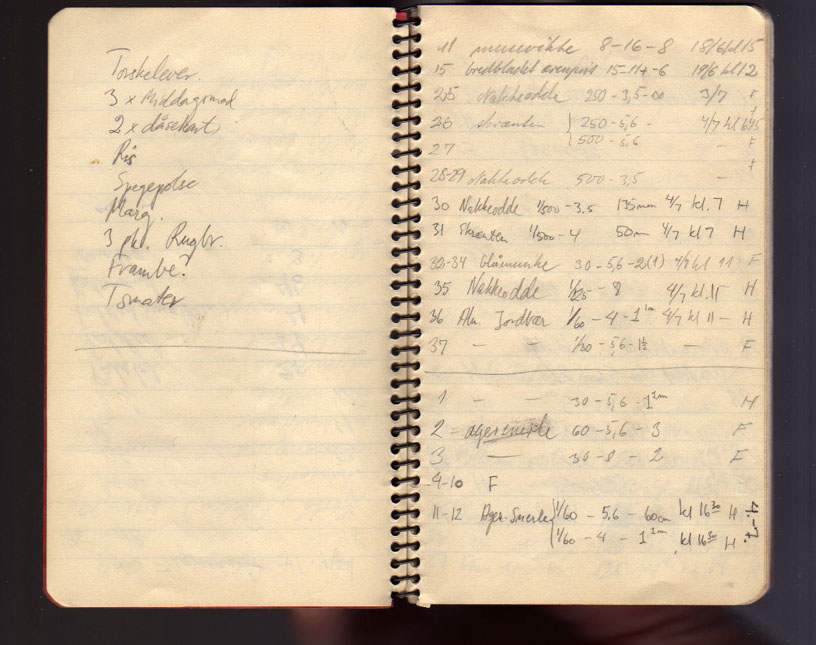 Torskelever.
3 x Middagsmad
2 x dåsekart
Ris
Spegepølse
Marg.
3 pk. Rugbr.
Frambe?
Tomater
41 musevikke 8-16-8 18/6 kl 15
15 bredbladet 15-11-6 19/6 kl 12
25 Nakkeodde 250-3,5-∞ 3/7 F
26 skrænten 250-5,6 - 4/7 kl F
27 - 500-5,6 - F
28-29 Nakkeodde 500-3,5 -
30 Nakkeodde 1/500-3.5 135mm 4/7 kl. 7 H
31 Skrænten 1/500-4 50m 4/7 kl 7 H
32-34 blåmunke 30-5,6-2(1) 4/7 kl 11 F
35 Nakkeodde 1/125-8 4/7 kl. 11 H
36 Alm. Jordbær 1/60-4-1m 4/7 kl 11 - H
37 - - 1/30-5,6-1½ - F
1 - - 30-5,6-1m H
2 - agersnerle 60-5,6-3 F
3 - 30-8-2 F
4-10 F
11-12 Ager-Snerle 1/60-5,6-60cm kl 16³⁰ H 4.-7.
1/60-4-1m kl 16³⁰ H